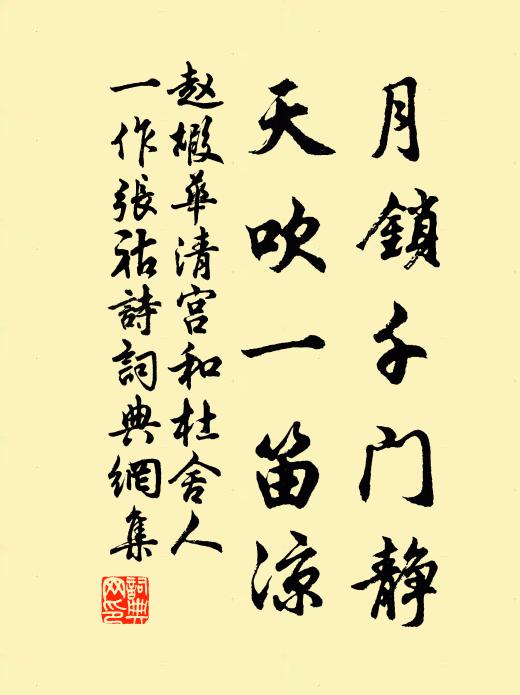 月鎖千门靜
天吹一笛涼
赵嘏華清宫和杜舍人
一作張祜詩詞典網集